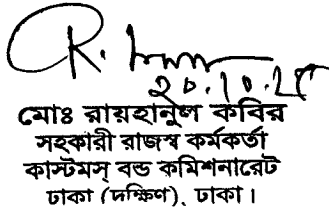 ২০.১০.২৫
মোঃ রায়হানুল কবির
সহকারী রাজস্ব কর্মকর্তা
কাস্টমস্ বন্ড কমিশনারেট
ঢাকা (দক্ষিণ), ঢাকা।